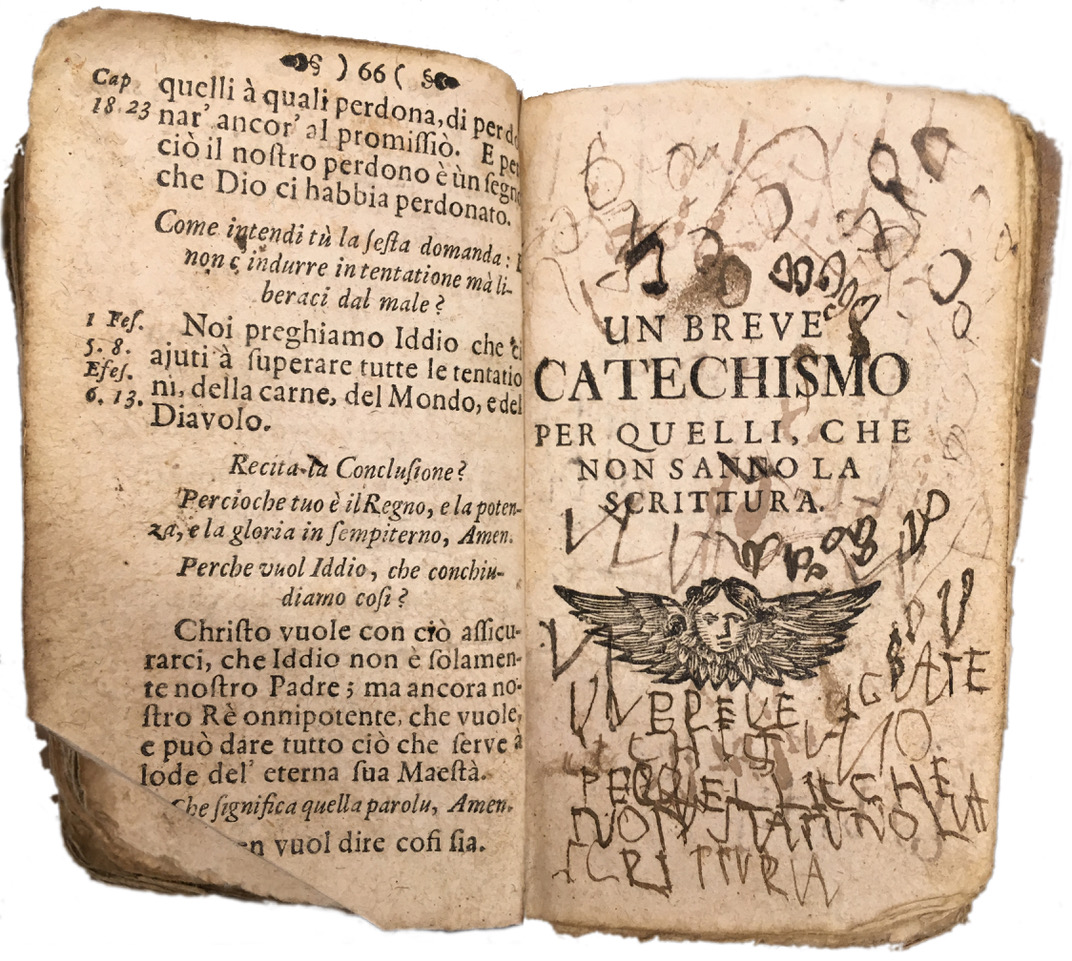 ) 66 (
Cap
18. 23
quelli à quali perdona, di perdo
nar' ancor' al promiſſiò. E per
ciò il noſtro perdono è ùn ſegn
che Dio ci habbia perdonato.
Come intendi tù la ſeſta domanda: E
non c indurre in tentatione mà li-
beraci dal male?
1 Feſ.
5. 8.
Efeſ.
6. 13.
Noi preghiamo Iddio che ci
ajuti à ſuperare tutte le tentatio
ni, della carne, del Mondo, e del
Diavolo.
Recita la Concluſione?
Percioche tuo è il Regno, e la poten-
za, e la gloria in ſempiterno, Amen.
Perche vuol Iddio, che conchiu-
diamo coſi?
Chriſto vuole con ciò aſſicu-
rarci, che Iddio non è ſolamen-
te noſtro Padre; ma ancora no-
ſtro Rè onnipotente, che vuole,
e può dare tutto ciò che ſerve à
lode del' eterna ſua Maeſtà.
Che ſignifica quella parolu, Amen.
en vuol dire coſi ſia.
UN BREVE
CATECHISMO
PER QUELLI, CHE
NON SANNO LA
SCRITTURA.
UN BREVE
CHIS
PEQUELLI CHE
SCRITTURIA